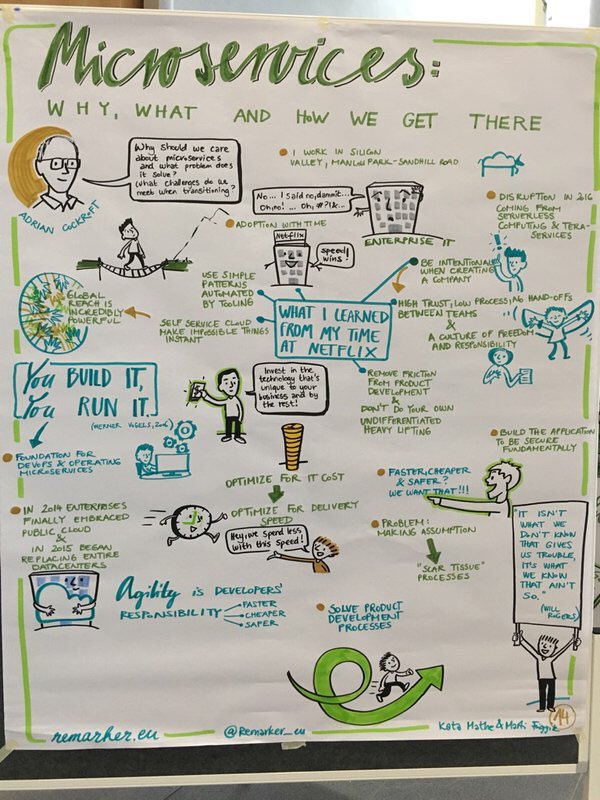 Microservices:
WHY, WHAT AND HOW WE GET THERE
Why should we care
about microservices
and what problem does
it solve?
What challenges do we
meet when transitioning?
ADRIAN COCKROFT
I WORK IN SILICON
VALLEY, MANLON PARK-SANDHILL ROAD
No... I said no, dammit...
Oh, no! ... Oh, #?!&...
ENTERPRISE IT
DISRUPTION IN 2016
COMING FROM
SERVERLESS
COMPUTING & TERA-
SERVICES
ADOPTION WITH TIME
Netflix
speed
wins!
BE INTENTIONAL
WHEN CREATING
A COMPANY
USE SIMPLE
PATTERNS
AUTOMATED
BY TOOLING
GLOBAL
REACH IS
INCREDIBLY
POWERFUL
SELF SERVICE CLOUD
MAKE IMPOSSIBLE THINGS
INSTANT
WHAT I LEARNED
FROM MY TIME
AT NETFLIX
HIGH TRUST, LOW PROCESSING HAND-OFFS
BETWEEN TEAMS
&
A CULTURE OF FREEDOM
AND RESPONSIBILITY
REMOVE FRICTION
FROM PRODUCT
DEVELOPMENT
&
DON'T DO YOUR OWN
UNDIFFERENTIATED
HEAVY LIFTING
You BUILD IT,
You RUN IT.
(WERNER VOGELS, 2006)
Invest in the
technology that's
unique to your
business and buy
the rest!
FOUNDATION FOR
DEVOPS & OPERATING
MICROSERVICES
OPTIMIZE FOR IT COST
OPTIMIZE FOR DELIVERY
SPEED
Hey, we spend less
with this speed!
BUILD THE APPLICATION
TO BE SECURE
FUNDAMENTALLY
FASTER, CHEAPER
& SAFER?
WE WANT THAT!!!
PROBLEM:
MAKING ASSUMPTION
"SCAR TISSUE"
PROCESSES
"IT ISN'T
WHAT WE
DON'T KNOW
THAT GIVES
US TROUBLE,
IT'S WHAT
WE KNOW
THAT AIN'T
SO."
(WILL
ROGERS)
IN 2014 ENTERPRISES
FINALLY EMBRACED
PUBLIC CLOUD
&
IN 2015 BEGAN
REPLACING ENTIRE
DATACENTERS
Agility IS DEVELOPERS'
RESPONSIBILITY
FASTER
CHEAPER
SAFER
SOLVE PRODUCT
DEVELOPMENT
PROCESSES
remarker.eu
@Remarker_eu
Kata Mathe &
14